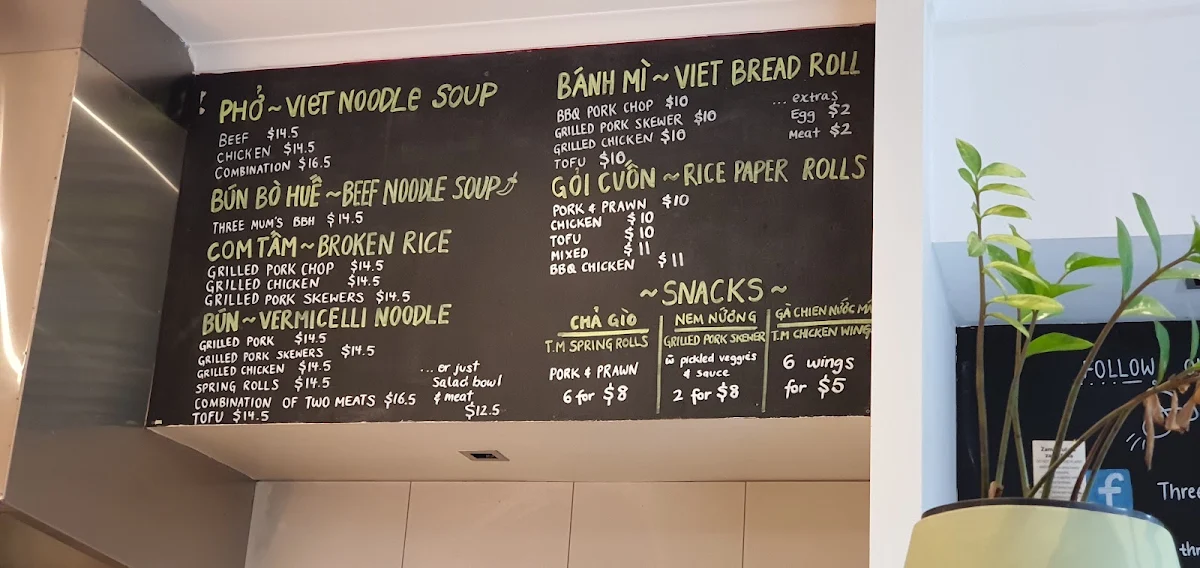 PHỞ ~ VIET NOODLE SOUP
BEEF $14.5
CHICKEN $14.5
COMBINATION $16.5
BÚN BÒ HUẾ ~ BEEF NOODLE SOUP
THREE MUM'S BBH $14.5
COM TẤM ~ BROKEN RICE
GRILLED PORK CHOP $14.5
GRILLED CHICKEN $14.5
GRILLED PORK SKEWERS $14.5
BÚN ~ VERMICELLI NOODLE
GRILLED PORK $14.5
GRILLED PORK SKEWERS $14.5
GRILLED CHICKEN $14.5
SPRING ROLLS $14.5
COMBINATION OF TWO MEATS $16.5
TOFU $14.5
...or just
Salad bowl
& meat
$12.5
BÁNH MÌ ~ VIET BREAD ROLL
BBQ PORK CHOP $10
GRILLED PORK SKEWER $10
GRILLED CHICKEN $10
TOFU $10
... extras
Egg $2
Meat $2
GỎI CUỐN ~ RICE PAPER ROLLS
PORK & PRAWN $10
CHICKEN $10
TOFU $10
MIXED $11
BBQ CHICKEN $11
~ SNACKS ~
CHẢ GIÒ
T.M SPRING ROLLS
PORK & PRAWN
6 for $8
NEM NƯỚNG
GRILLED PORK SKEWER
w̄ pickled veggies
& sauce
2 for $8
GÀ CHIEN NƯỚC
T.M CHICKEN WING
6 wings
for $5
FOLLOW
f
Three